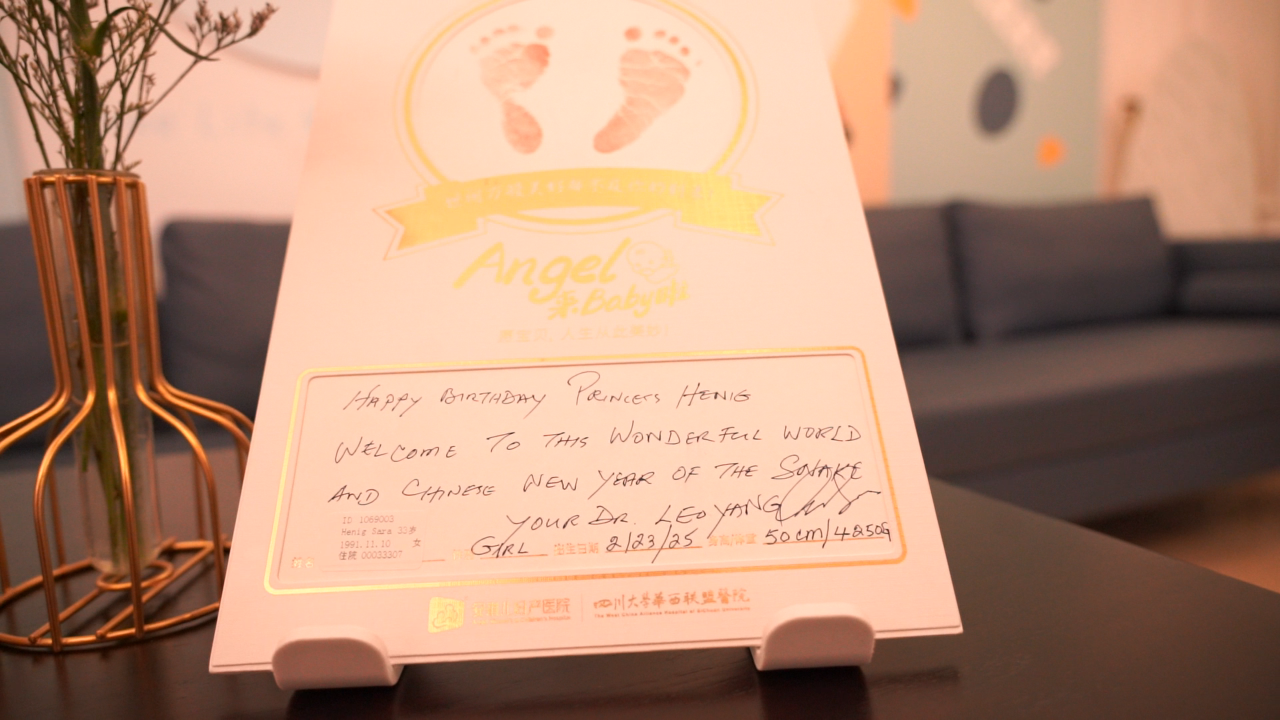 Angel
来Baby啦
HAPPY BIRTHDAY PRINCESS HENIG
WELCOME TO THIS WONDERFUL WORLD
AND CHINESE NEW YEAR OF THE SNAKE
YOUR DR. LEO YANG
ID 1089003
Henig Sara 33岁
1991.11.10 女
住院 00033307
GIRL 出生日期 2/23/25 50cm/4250g
四川大学华西联盟醫院